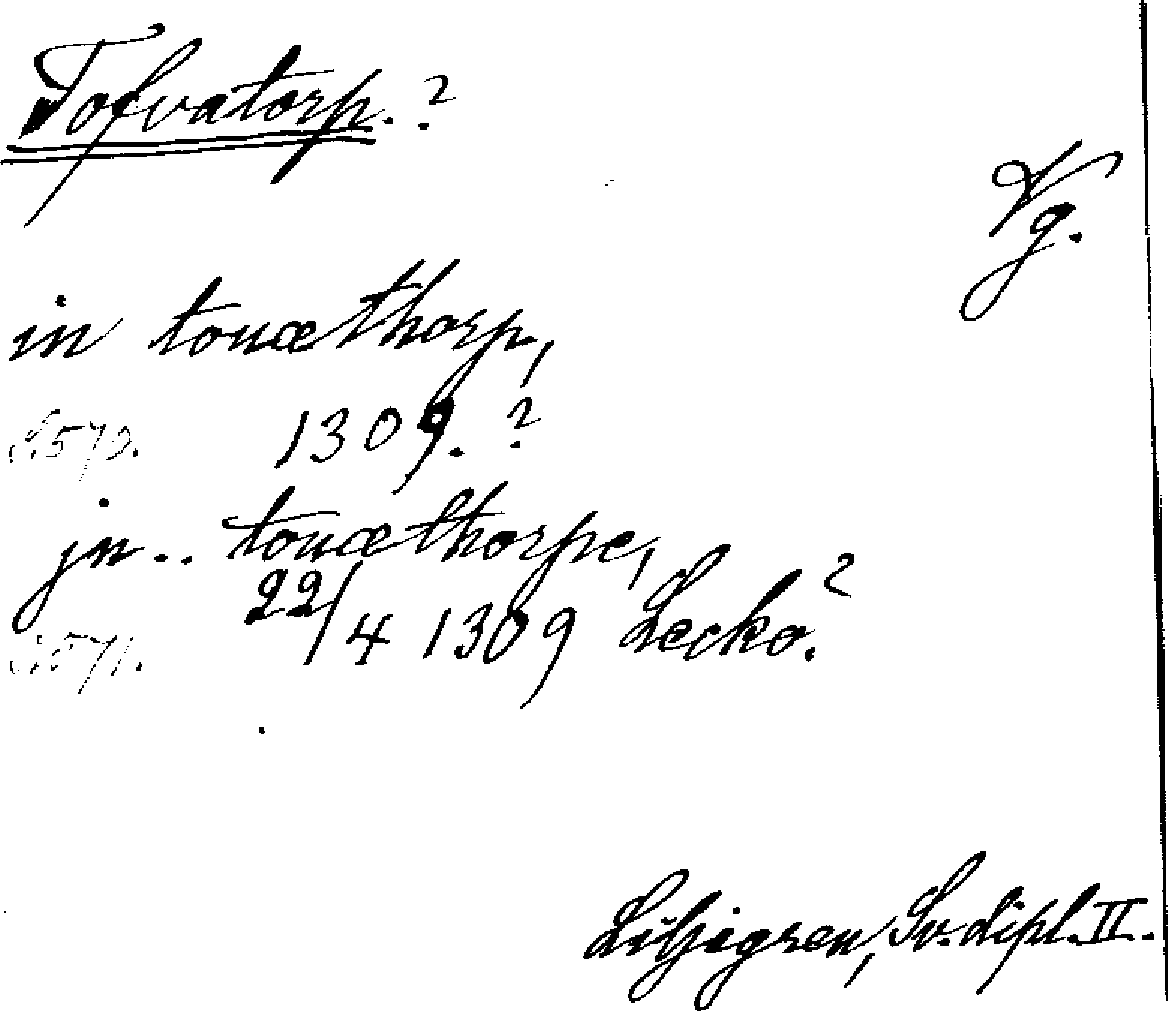 Tofvatorp. ?
Vg.
in touæthorp,
1570. 1309. ?
jn .. touæthorpe,
1571. 22/4 1309 Lecko. ?
Liljegren, Sv. dipl. II.